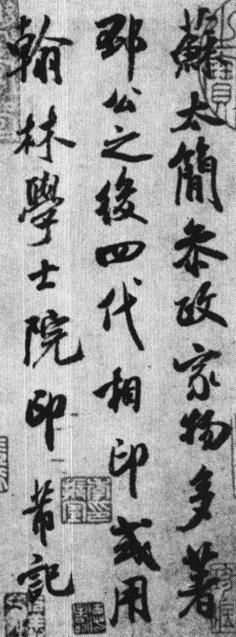 蘇太簡叅政家物多著
邳公之後四代相印或用
翰林學士院印芾記